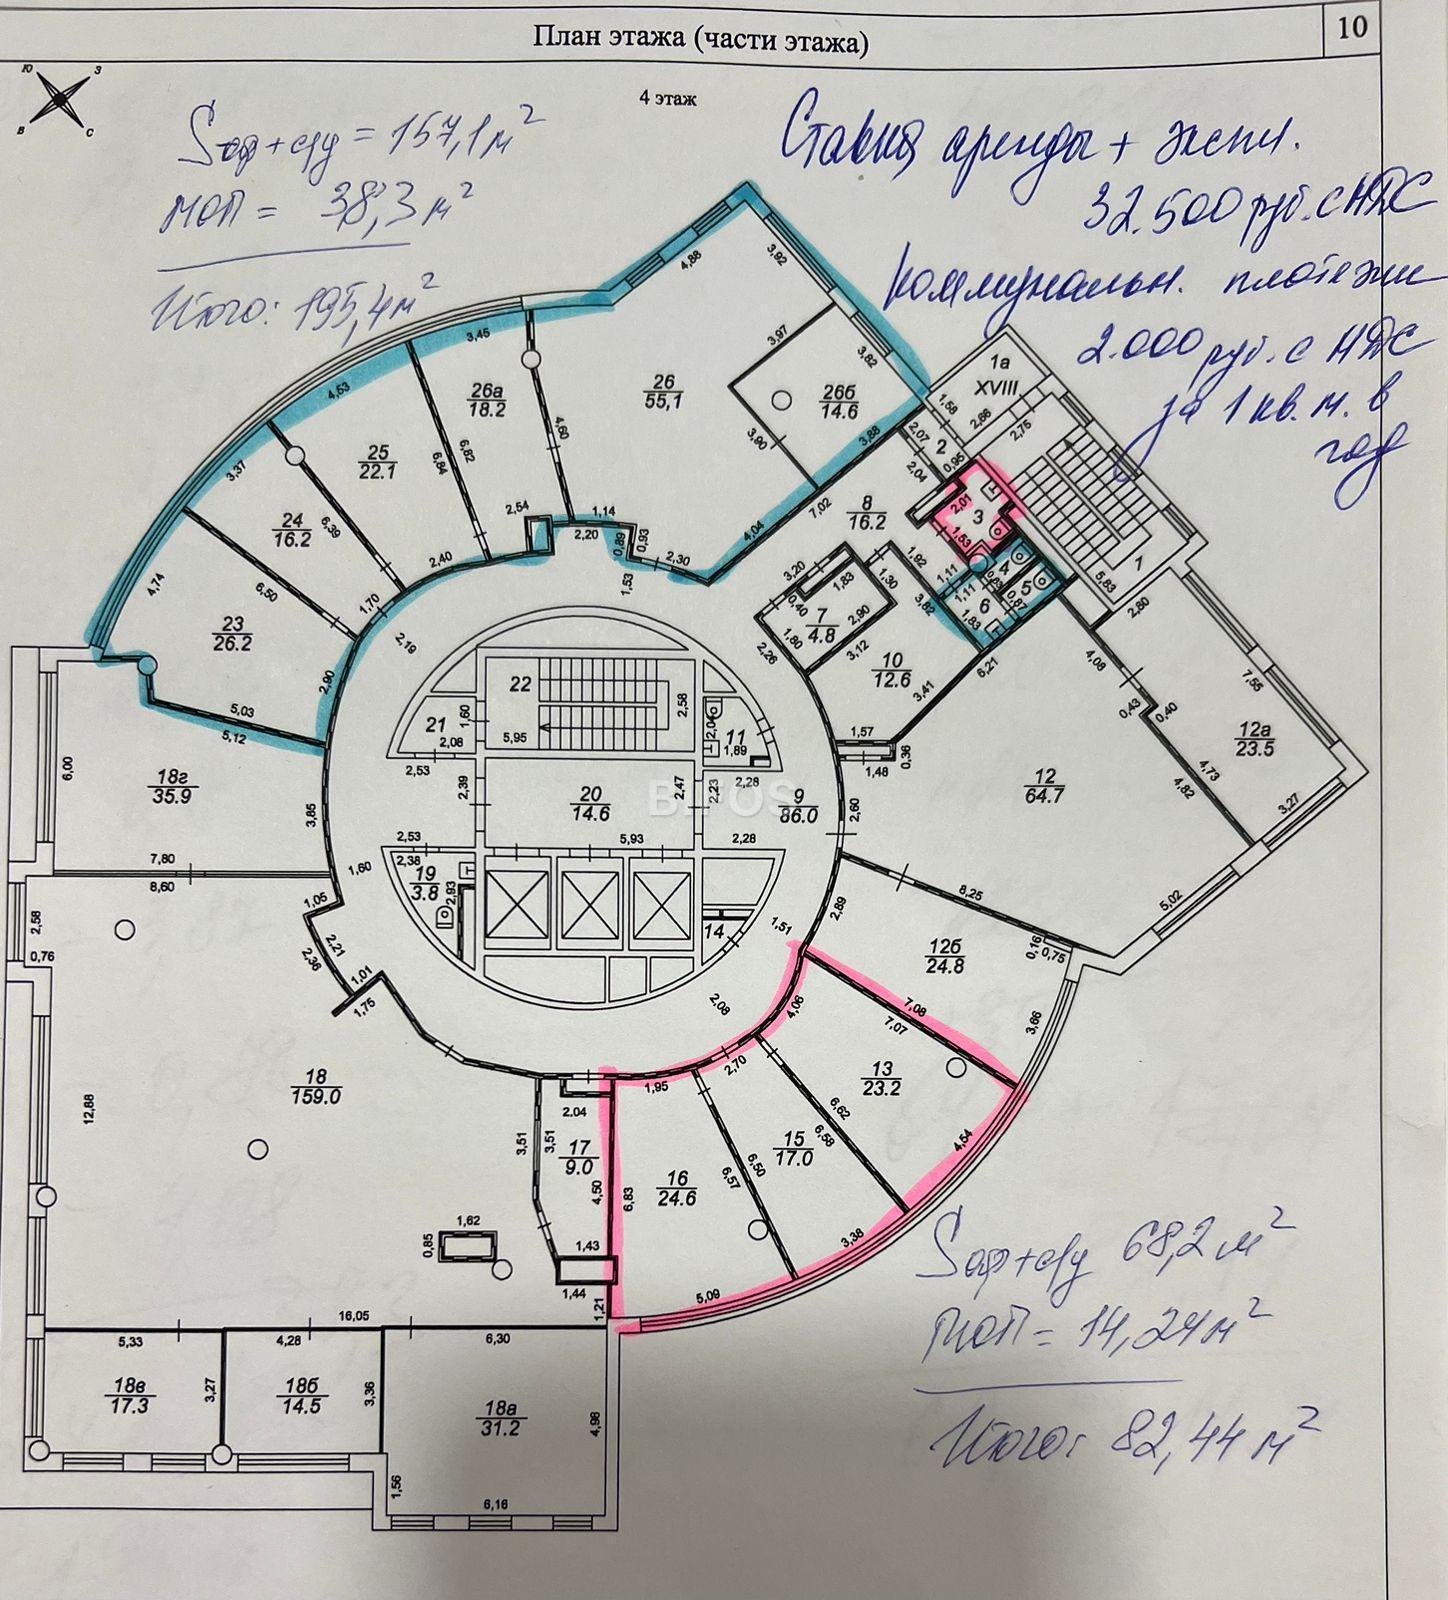 План этажа (части этажа)
10
Ю
З
В
С
4 этаж
Sоф+с/у = 157,1 м²
МОП = 38,3 м²
Итого: 195,4 м²
Ставка аренды + экспл.
32.500 руб. с НДС
коммунальн. платежи
2.000 руб. с НДС
за 1 кв. м. в
год
4,88
3,92
3,97
3,82
3,90
3,88
26
55,1
26б
14.6
3,45
26а
18.2
4,60
4,53
25
22.1
6,82
6,84
3,37
24
16.2
6,39
4,74
6,50
23
26.2
2,54
1,14
2,20
0,89
0,93
2,30
1,53
4,04
7,02
2,40
1,70
2,19
2,90
5,03
5,12
1а
XVIII
1,58
2,86
2,75
2,07
2
0,95
2,04
8
16.2
2,01
3
1,53
1
5,83
2,80
1,92
1,11
0,83
4
5
1,11
6
0,87
1,83
3,20
1,83
1,30
3,82
0,40
7
4.8
2,90
1,80
2,26
3,12
10
12.6
3,41
6,21
1,57
1,48
0,36
4,08
0,43
0,40
7,55
12а
23.5
4,73
4,82
3,27
12
64.7
5,02
8,25
6,00
18г
35.9
3,85
7,80
8,60
1,60
22
5,95
2,58
21
1,60
2,08
2,53
2,39
2,04
11
1,89
2,28
2,47
2,23
20
14.6
5,93
BITOS
9
86.0
2,60
2,28
2,53
2,38
19
3.8
2,93
14
1,51
2,89
12б
24.8
0,16
0,75
3,66
7,08
7,07
4,06
2,08
2,70
1,95
13
23.2
6,62
6,58
4,54
15
17.0
6,50
6,57
3,38
16
24.6
6,83
5,09
2,58
0,76
1,05
2,21
2,36
1,01
1,75
18
159.0
12,88
2.04
3,51
3,51
17
9.0
4,50
1,43
1,44
1,21
1,62
0,85
16,05
5,33
4,28
6,30
18в
17.3
3,27
18б
14.5
3,36
18а
31.2
4,98
1,56
6,16
Sоф+с/у 68,2 м²
МОП = 14,24 м²
Итого: 82,44 м²